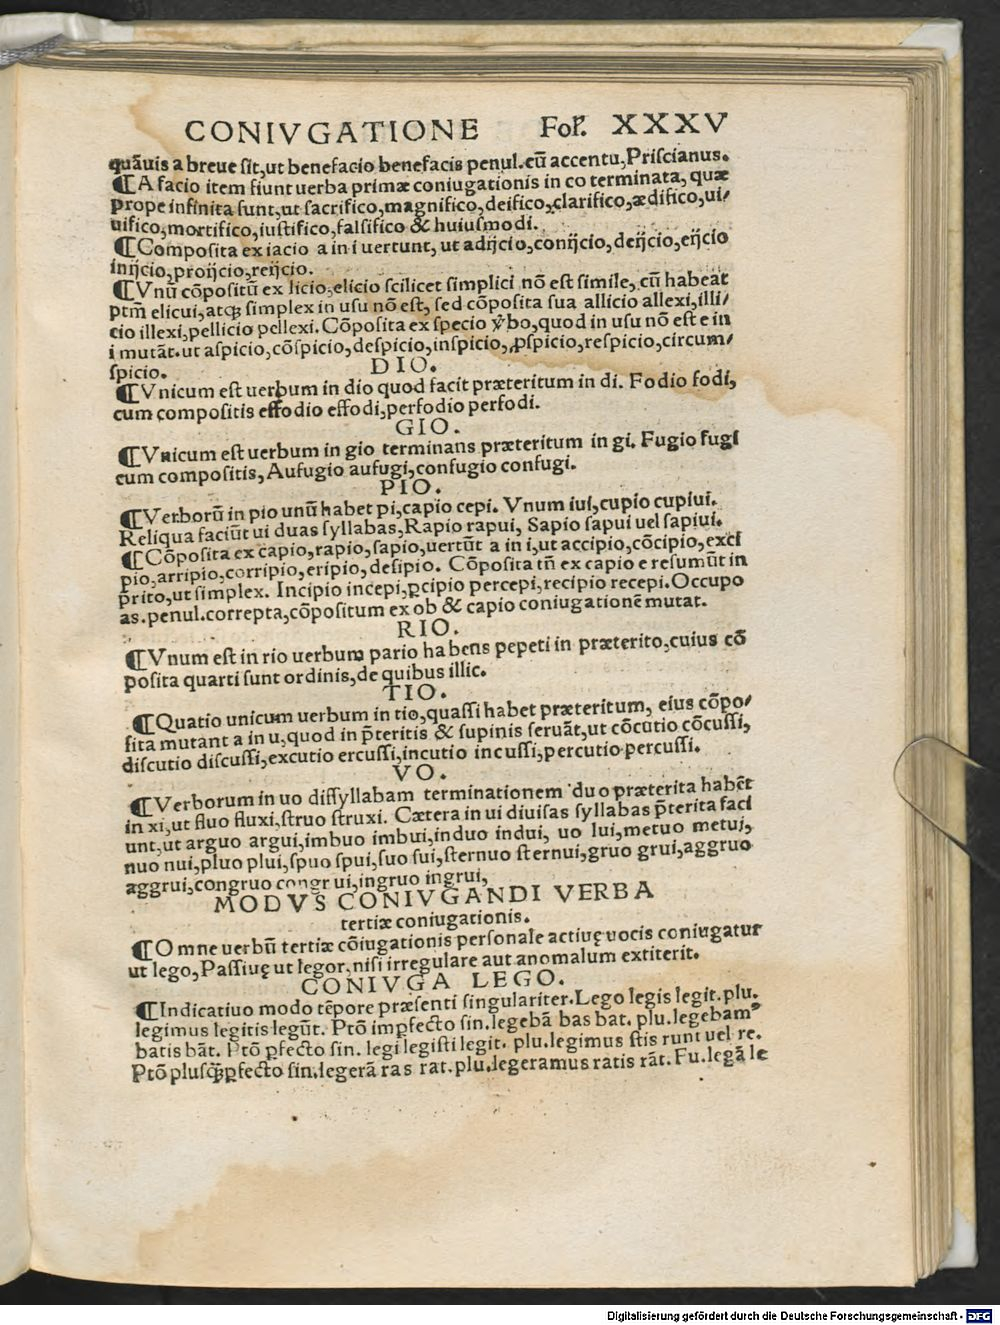 CONIVGATIONE Fol. XXXV
quãuis a breue sit,ut benefacio benefacis penul.cũ accentu,Priscianus.
¶A facio item fiunt uerba primæ coniugationis in co terminata, quæ
prope infinita sunt,ut sacrifico,magnifico,deifico,clarifico,ædifico,ui/
uifico,mortifico,iustifico,falsifico & huiusmodi.
¶Composita ex iacio a in i uertunt, ut adijcio,conijcio,deijcio,eijcio
inijcio,proijcio,reijcio.
¶Vnũ cõpositũ ex licio,elicio scilicet simplici nõ est simile, cũ habeat
ptm̃ elicui,atq; simplex in usu nõ est, sed cõposita sua allicio allexi,illi/
cio illexi,pellicio pellexi.Cõposita ex specio ỹbo,quod in usu nõ est e in
i mutãt.ut aspicio,cõspicio,despicio,inspicio,ꝓspicio,respicio,circum/
spicio.
DIO.
¶Vnicum est uerbum in dio quod facit præteritum in di. Fodio fodi,
cum compositis effodio effodi,perfodio perfodi.
GIO.
¶Vnicum est uerbum in gio terminans præteritum in gi. Fugio fugi
cum compositis, Aufugio aufugi,confugio confugi.
PIO.
¶Verborũ in pio unũ habet pi,capio cepi. Vnum iui,cupio cupiui.
Reliqua faciũt ui duas syllabas,Rapio rapui, Sapio sapui uel sapiui.
¶Cõposita ex capio,rapio,sapio,uertũt a in i,ut accipio,cõcipio,exci
pio,arripio,corripio,eripio,desipio. Cõposita tñ ex capio e resumũt in
prito,ut simplex. Incipio incepi,ꝑcipio percepi,recipio recepi.Occupo
as.penul.correpta,cõpositum ex ob & capio coniugationẽ mutat.
RIO.
¶Vnum est in rio uerbum pario habens pepeti in præterito,cuius cõ
posita quarti sunt ordinis,de quibus illic.
TIO.
¶Quatio unicum uerbum in tio,quassi habet præteritum, eius cõpo/
sita mutant a in u,quod in p̃teritis & supinis seruãt,ut cõcutio cõcussi,
discutio discussi,excutio ercussi,incutio incussi,percutio percussi.
VO.
¶Verborum in uo dissyllabam terminationem duo præterita habẽt
in xi,ut fluo fluxi,struo struxi. Cætera in ui diuisas syllabas p̃terita faci
unt,ut arguo argui,imbuo imbui,induo indui, uo lui,metuo metui,
nuo nui,pluo plui,spuo spui,suo sui,sternuo sternui,gruo grui,aggruo
aggrui,congruo congr ui,ingruo ingrui,
MODVS CONIVGANDI VERBA
tertiæ coniugationis.
¶Omne uerbũ tertiæ cõiugationis personale actiuę uocis coniugatur
ut lego,Passiuę ut legor,nisi irregulare aut anomalum extiterit.
CONIVGA LEGO.
¶Indicatiuo modo tẽpore præsenti singulariter.Lego legis legit.plu.
legimus legitis legũt. Ptõ imꝑfecto sin.legebã bas bat. plu.legebamꝰ
batis bãt. Ptõ ꝑfecto sin. legi legisti legit. plu.legimus stis runt uel re.
Ptõ plusq̃ꝑfecto sin.legerã ras rat.plu.legeramus ratis rãt. Fu.legã le
Digitalisierung gefördert durch die Deutsche Forschungsgemeinschaft - DFG